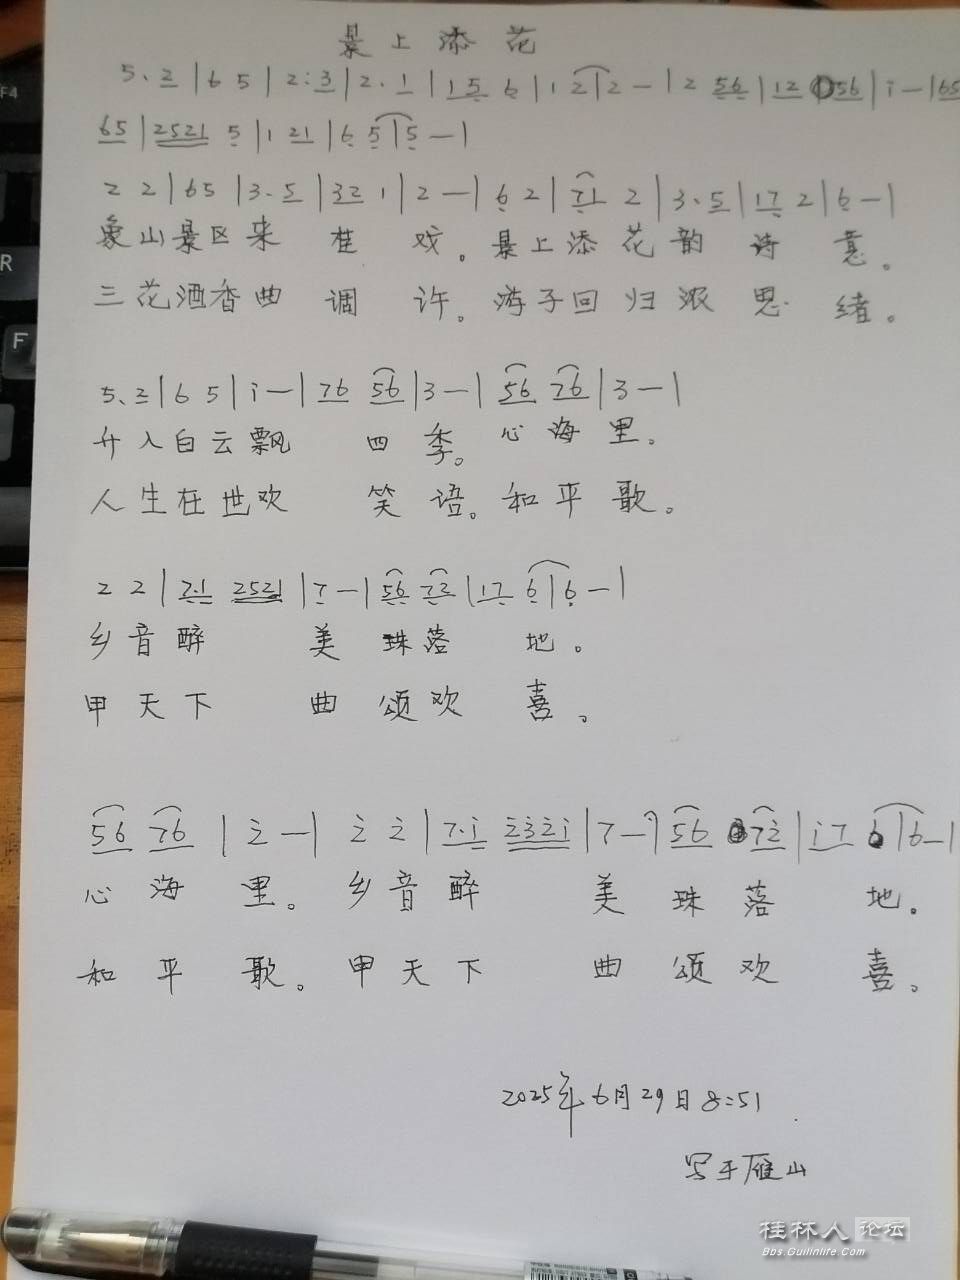 景上添花
5. 2 | 6 5 | 2: 3 | 2. 1 | 1 5 6 | 1 2 | 2 — | 2 56 | 12 56 | i — | 65
65 | 2521 5 | 1 21 | 6 5 | 5 — |
2 2 | 65 | 3. 5 | 32 1 | 2 — | 6 2 | 71 2 | 3. 5 | 17 2 | 6 — |
象山景区来 桂 戏。景上添花韵 诗 意。
三花酒香曲 调 许。游子回归浓 思 绪。
5. 2 | 6 5 | i — | 76 56 | 3 — | 56 76 | 3 — |
升入白云飘 四季。心海里。
人生在世欢 笑语。和平歌。
2 2 | 7.1 2521 | 7 — | 56 72 | 17 6 | 6 — |
乡音醉 美 珠落 地。
甲天下 曲 颂欢 喜。
56 76 | 2̇ — | 2̇ 2̇ | 7.i 2̇3̇2̇i | 7 — | 56 72̇ | i7 6 | 6 — |
心海里。乡音醉 美 珠落 地。
和平歌。甲天下 曲 颂欢 喜。
2025年6月29日8:51
写于雁山
F4
R
F
桂林人论坛
Bbs.Guilinlife.Com